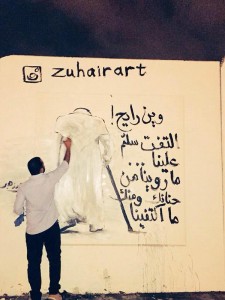 zuhairart
وين رايح!
إلتفت سلّم
علينا
ما روينا من
حنانك ومنك
ما اكتفينا